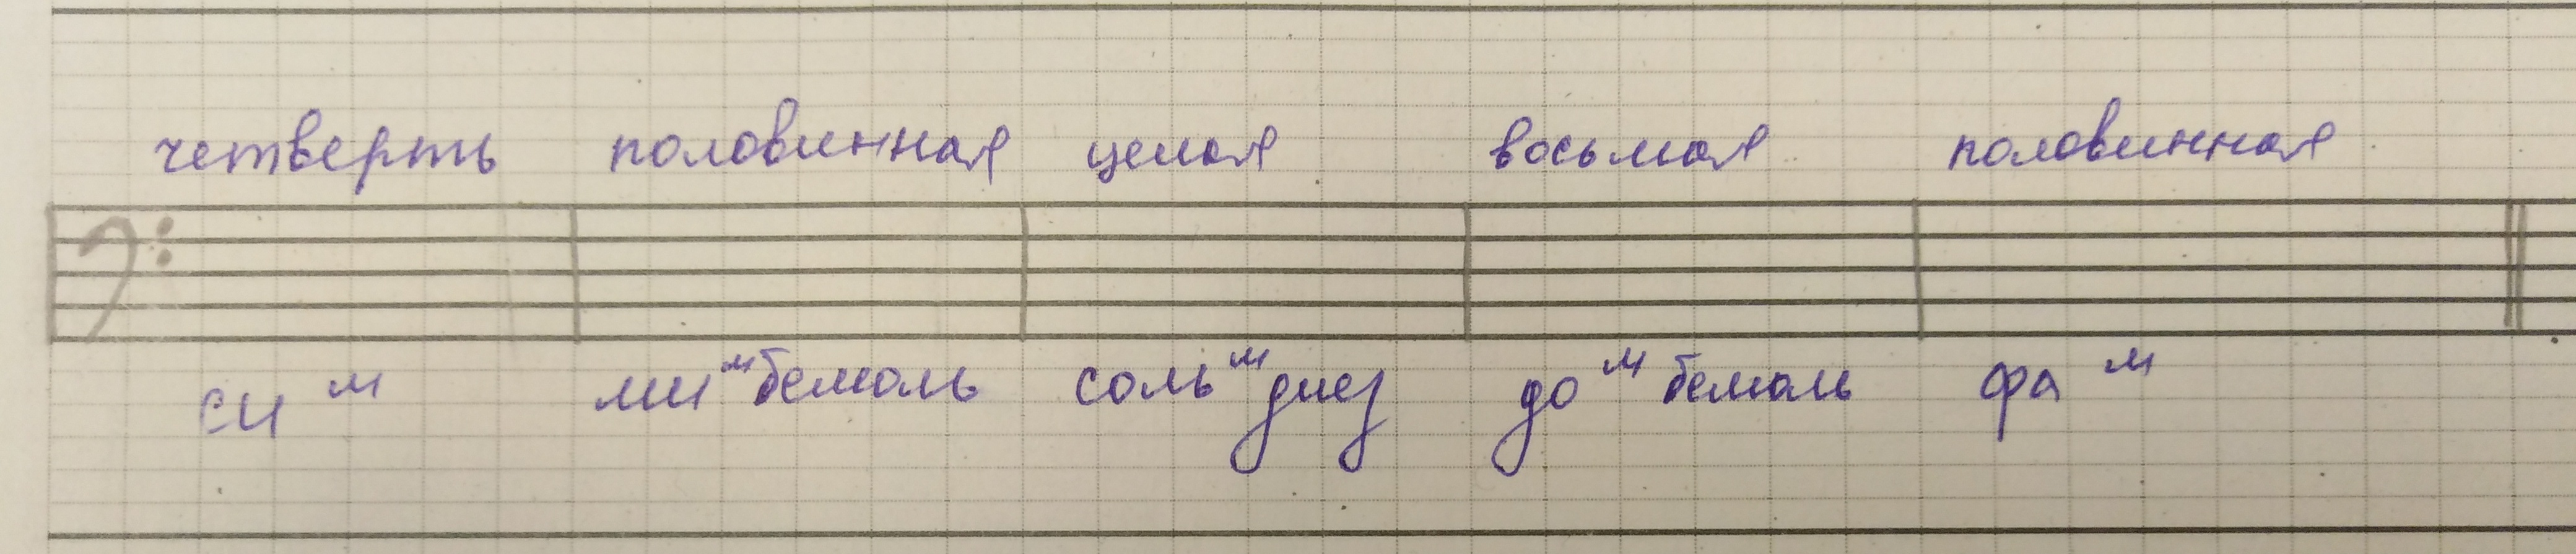 четверть половинная целая восьмая половинная
си м ми м бемоль соль м диез до м бемоль фа м